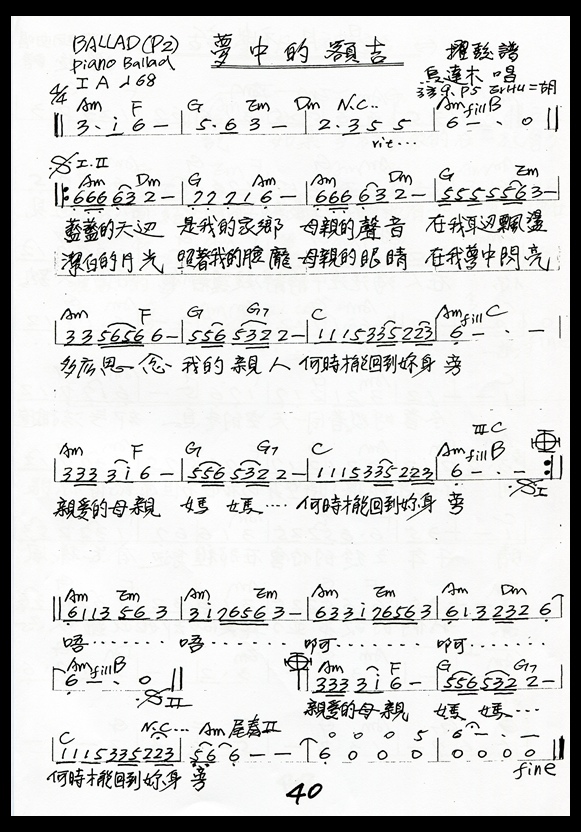 BALLAD(P2) 夢中的額吉 譜
piano Ballad 烏達木 唱
4/4 I A ♩68
Am F G Em Dm N.C.. Am fill B
3·i6— 5·63— 2·355 6—·0
rit...
I.II
Am Dm G Am Am Dm G Em
666632— 777216— 666632— 55555563—
藍藍的天边 是我的家鄉 母親的聲音 在我耳边飄盪
潔白的月光 照著我的臉龐 母親的眼睛 在我夢中閃亮
Am F G G7 C Am fill C
3356566— 5565322— 1115335223 6—·—
多底思一念 我的親人 何時才能回到妳身旁
III C
Am F G G7 C Am fill B
3333i6— 5565322— 1115335223 6—·—
I
親愛的母親 媽媽···· 何時才能回到妳身旁
Am Em Am Em Am Em Am Dm
6113563 3i26563— 633i26563 6132326
唔········ 唔········ 啊········ 啊········
Am fill B Am F G G7
6—·0 3333i6— 5565322—
II
親愛的母親 媽媽····
C N.C... Am 尾奏II 0005 6—·—
11153355223 566—— 6000 0000
何時才能回到妳身旁 fine
40